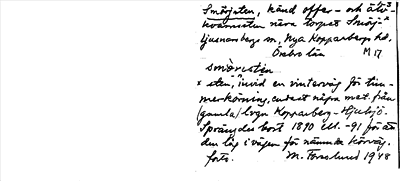 Smörjsten, känd offer- och älv-
kvarnsten nära torpet Smörj-x
Ljusnarsbergs sn, Nya Kopparbergs hd.
Örebro län M 17
smörjsten
x sten, invid en vinterväg för tim-
merkörning, endast några met. från
(gamla) lsvgn Kopparberg-Hjulsjö.
Sprängdes bort 1890 ell. -91 för att
den låg i vägen för nämnda körväg.
forts. M. Forslund 1948